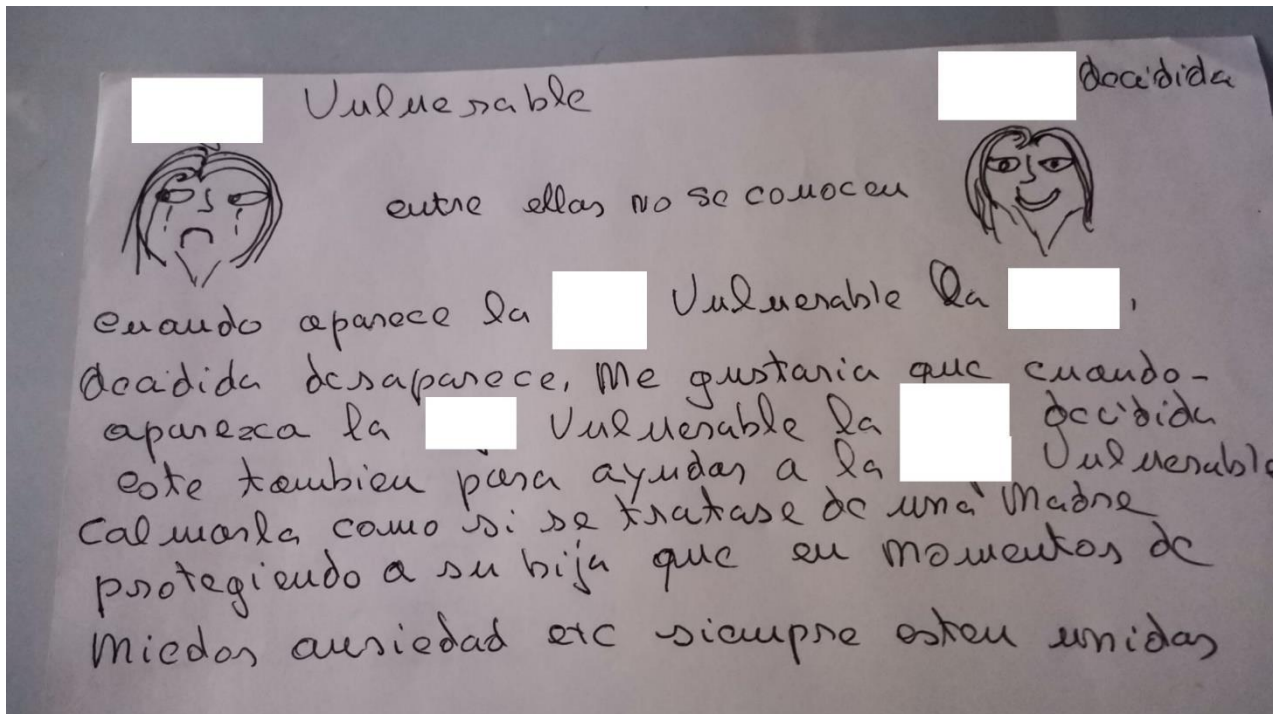 Vulnerable decidida
entre ellas no se conocen
cuando aparece la Vulnerable la ,
decidida desaparece, Me gustaria que cuando-
aparezca la Vulnerable la decidida
este tambien para ayudar a la Vulnerable
Calmarla como si se tratase de una Madre
protegiendo a su hija que en momentos de
Miedos ansiedad etc siempre esten unidas